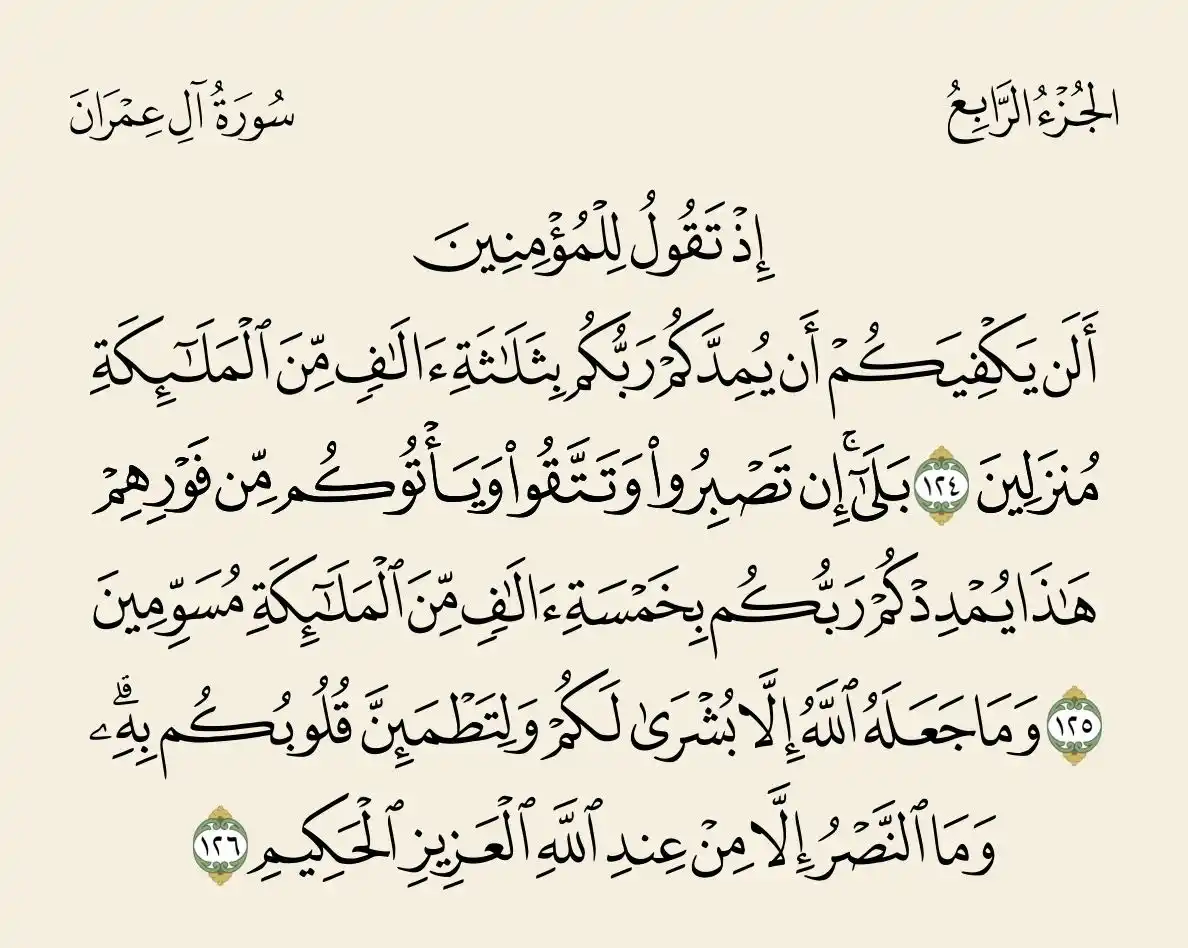 الجُزْءُ الرَّابِعُ
سُورَةُ آلِ عِمْرَانَ
إِذْ تَقُولُ لِلْمُؤْمِنِينَ
أَلَن يَكْفِيَكُمْ أَن يُمِدَّكُمْ رَبُّكُم بِثَلَٰثَةِ ءَالَٰفٍ مِّنَ ٱلْمَلَٰٓئِكَةِ
مُنزَلِينَ ١٢٤ بَلَىٰٓۚ إِن تَصْبِرُوا۟ وَتَتَّقُوا۟ وَيَأْتُوكُم مِّن فَوْرِهِمْ
هَٰذَا يُمْدِدْكُمْ رَبُّكُم بِخَمْسَةِ ءَالَٰفٍ مِّنَ ٱلْمَلَٰٓئِكَةِ مُسَوِّمِينَ
١٢٥ وَمَا جَعَلَهُ ٱللَّهُ إِلَّا بُشْرَىٰ لَكُمْ وَلِتَطْمَئِنَّ قُلُوبُكُم بِهِۦۗ
وَمَا ٱلنَّصْرُ إِلَّا مِنْ عِندِ ٱللَّهِ ٱلْعَزِيزِ ٱلْحَكِيمِ ١٢٦